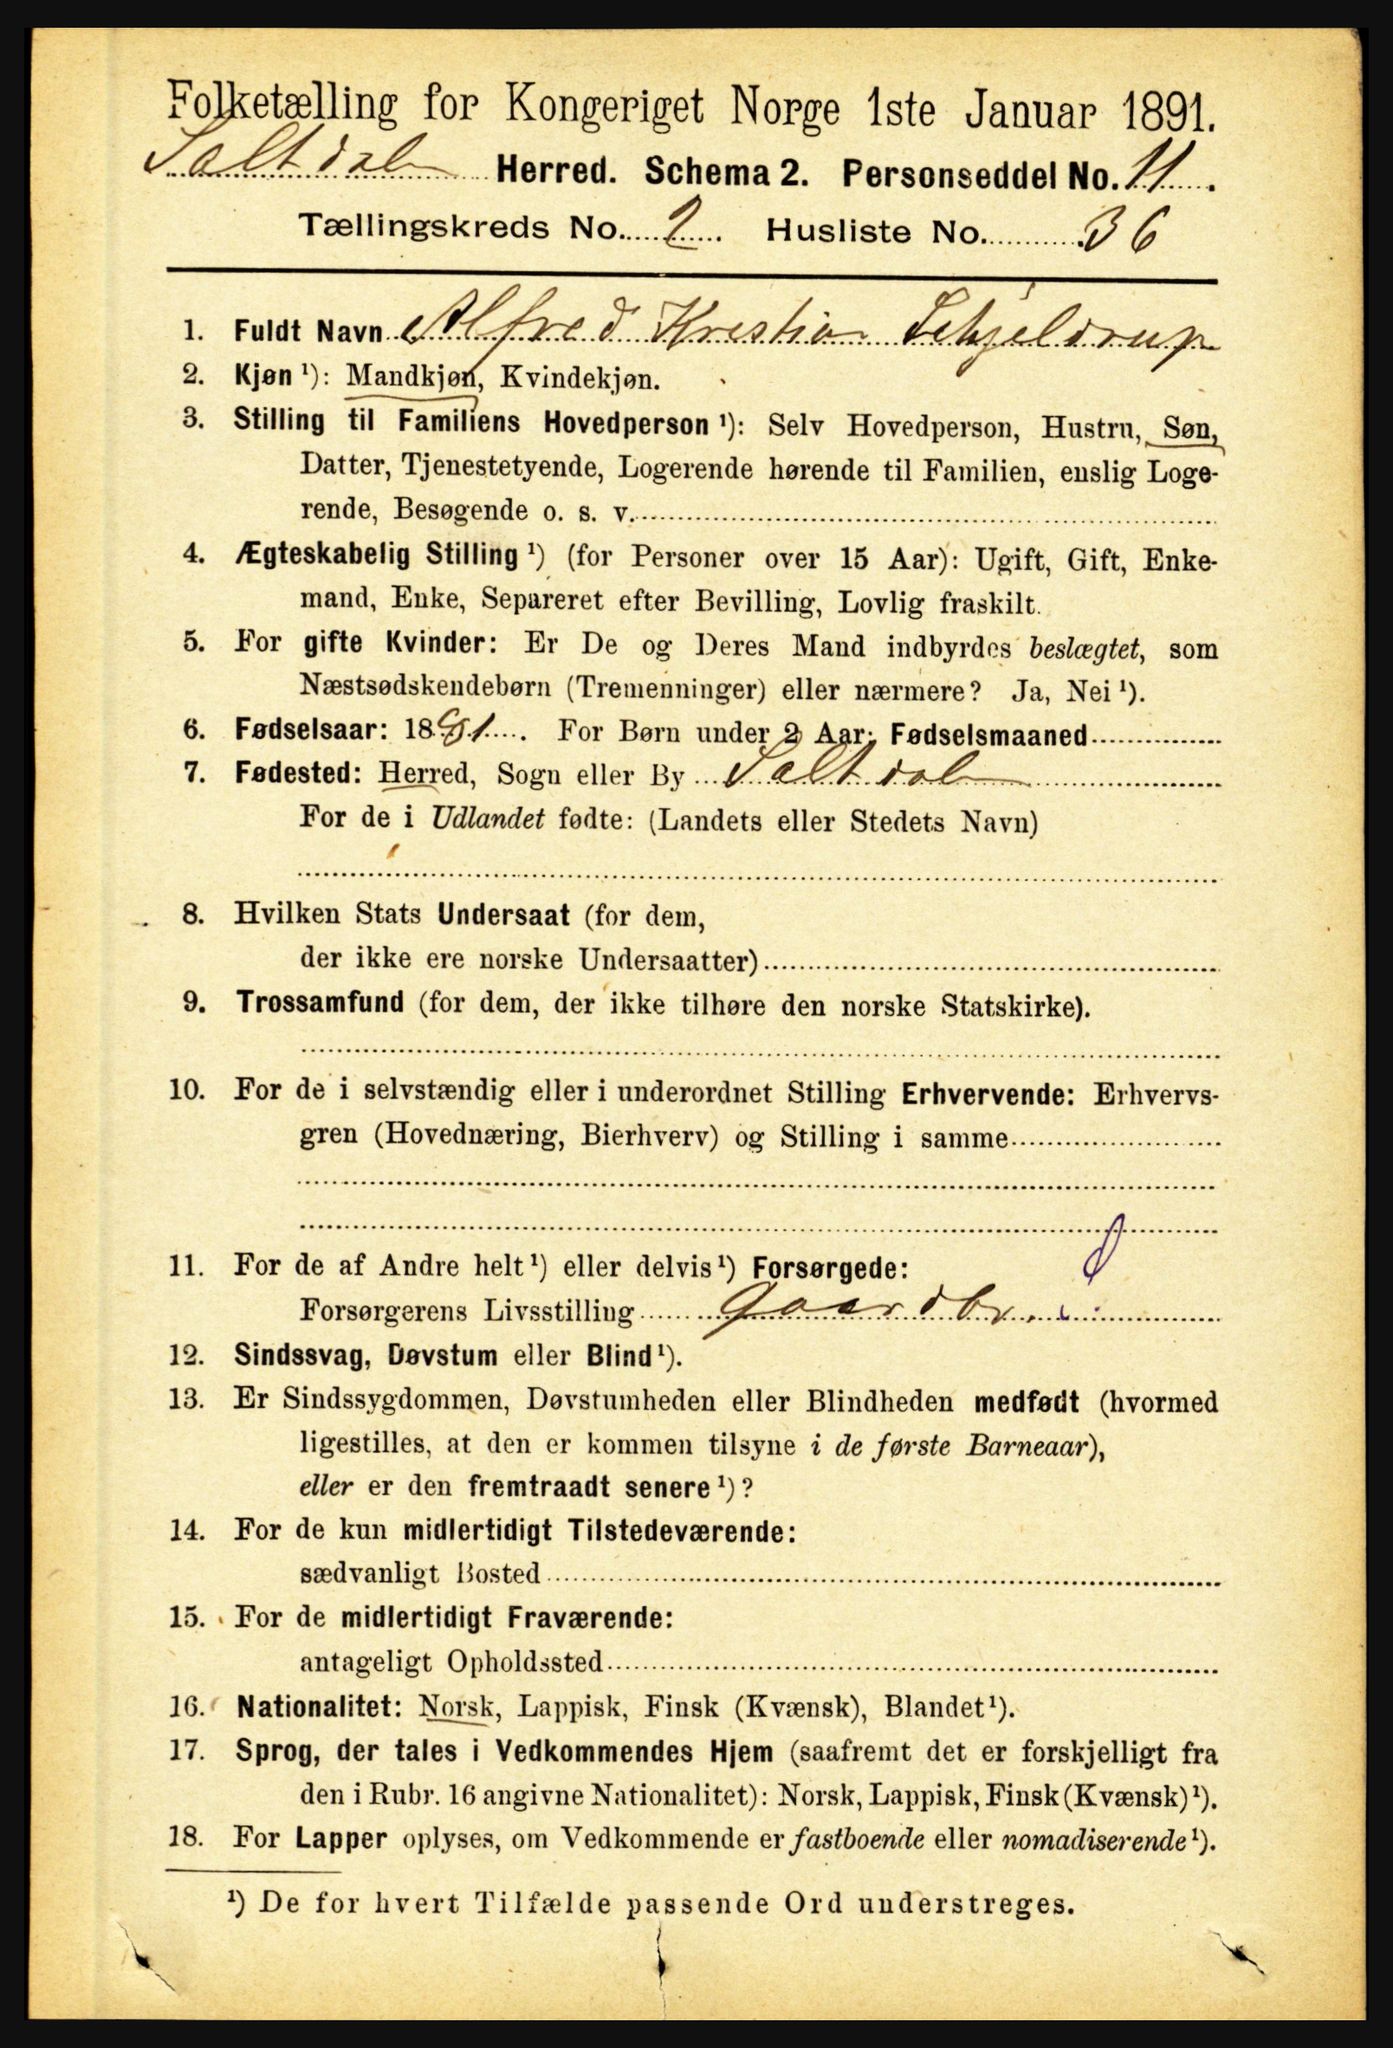 Folketælling for Kongeriget Norge 1ste Januar 1891.
Saltdal Herred. Schema 2. Personseddel No. 11.
Tællingskreds No. 2. Husliste No. 36
1. Fuldt Navn Alfred Kristian Schjeldrup
2. Kjøn ¹): Mandkjøn, Kvindekjøn.
3. Stilling til Familiens Hovedperson ¹): Selv Hovedperson, Hustru, Søn,
Datter, Tjenestetyende, Logerende hørende til Familien, enslig Loge-
rende, Besøgende o. s. v.
4. Ægteskabelig Stilling ¹) (for Personer over 15 Aar): Ugift, Gift, Enke-
mand, Enke, Separeret efter Bevilling, Lovlig fraskilt.
5. For gifte Kvinder: Er De og Deres Mand indbyrdes beslægtet, som
Næstsødskendebørn (Tremenninger) eller nærmere? Ja, Nei ¹).
6. Fødselsaar: 1881. For Børn under 2 Aar: Fødselsmaaned
7. Fødested: Herred, Sogn eller By Saltdal
For de i Udlandet fødte: (Landets eller Stedets Navn)
8. Hvilken Stats Undersaat (for dem,
der ikke ere norske Undersaatter)
9. Trossamfund (for dem, der ikke tilhøre den norske Statskirke).
10. For de i selvstændig eller i underordnet Stilling Erhvervende: Erhvervs-
gren (Hovednæring, Bierhverv) og Stilling i samme
11. For de af Andre helt ¹) eller delvis ¹) Forsørgede:
Forsørgerens Livsstilling Gaardbr.
12. Sindssvag, Døvstum eller Blind ¹).
13. Er Sindssygdommen, Døvstumheden eller Blindheden medfødt (hvormed
ligestilles, at den er kommen tilsyne i de første Barneaar),
eller er den fremtraadt senere ¹)?
14. For de kun midlertidigt Tilstedeværende:
sædvanligt Bosted
15. For de midlertidigt Fraværende:
antageligt Opholdssted
16. Nationalitet: Norsk, Lappisk, Finsk (Kvænsk), Blandet ¹).
17. Sprog, der tales i Vedkommendes Hjem (saafremt det er forskjelligt fra
den i Rubr. 16 angivne Nationalitet): Norsk, Lappisk, Finsk (Kvænsk) ¹).
18. For Lapper oplyses, om Vedkommende er fastboende eller nomadiserende ¹).
¹) De for hvert Tilfælde passende Ord understreges.